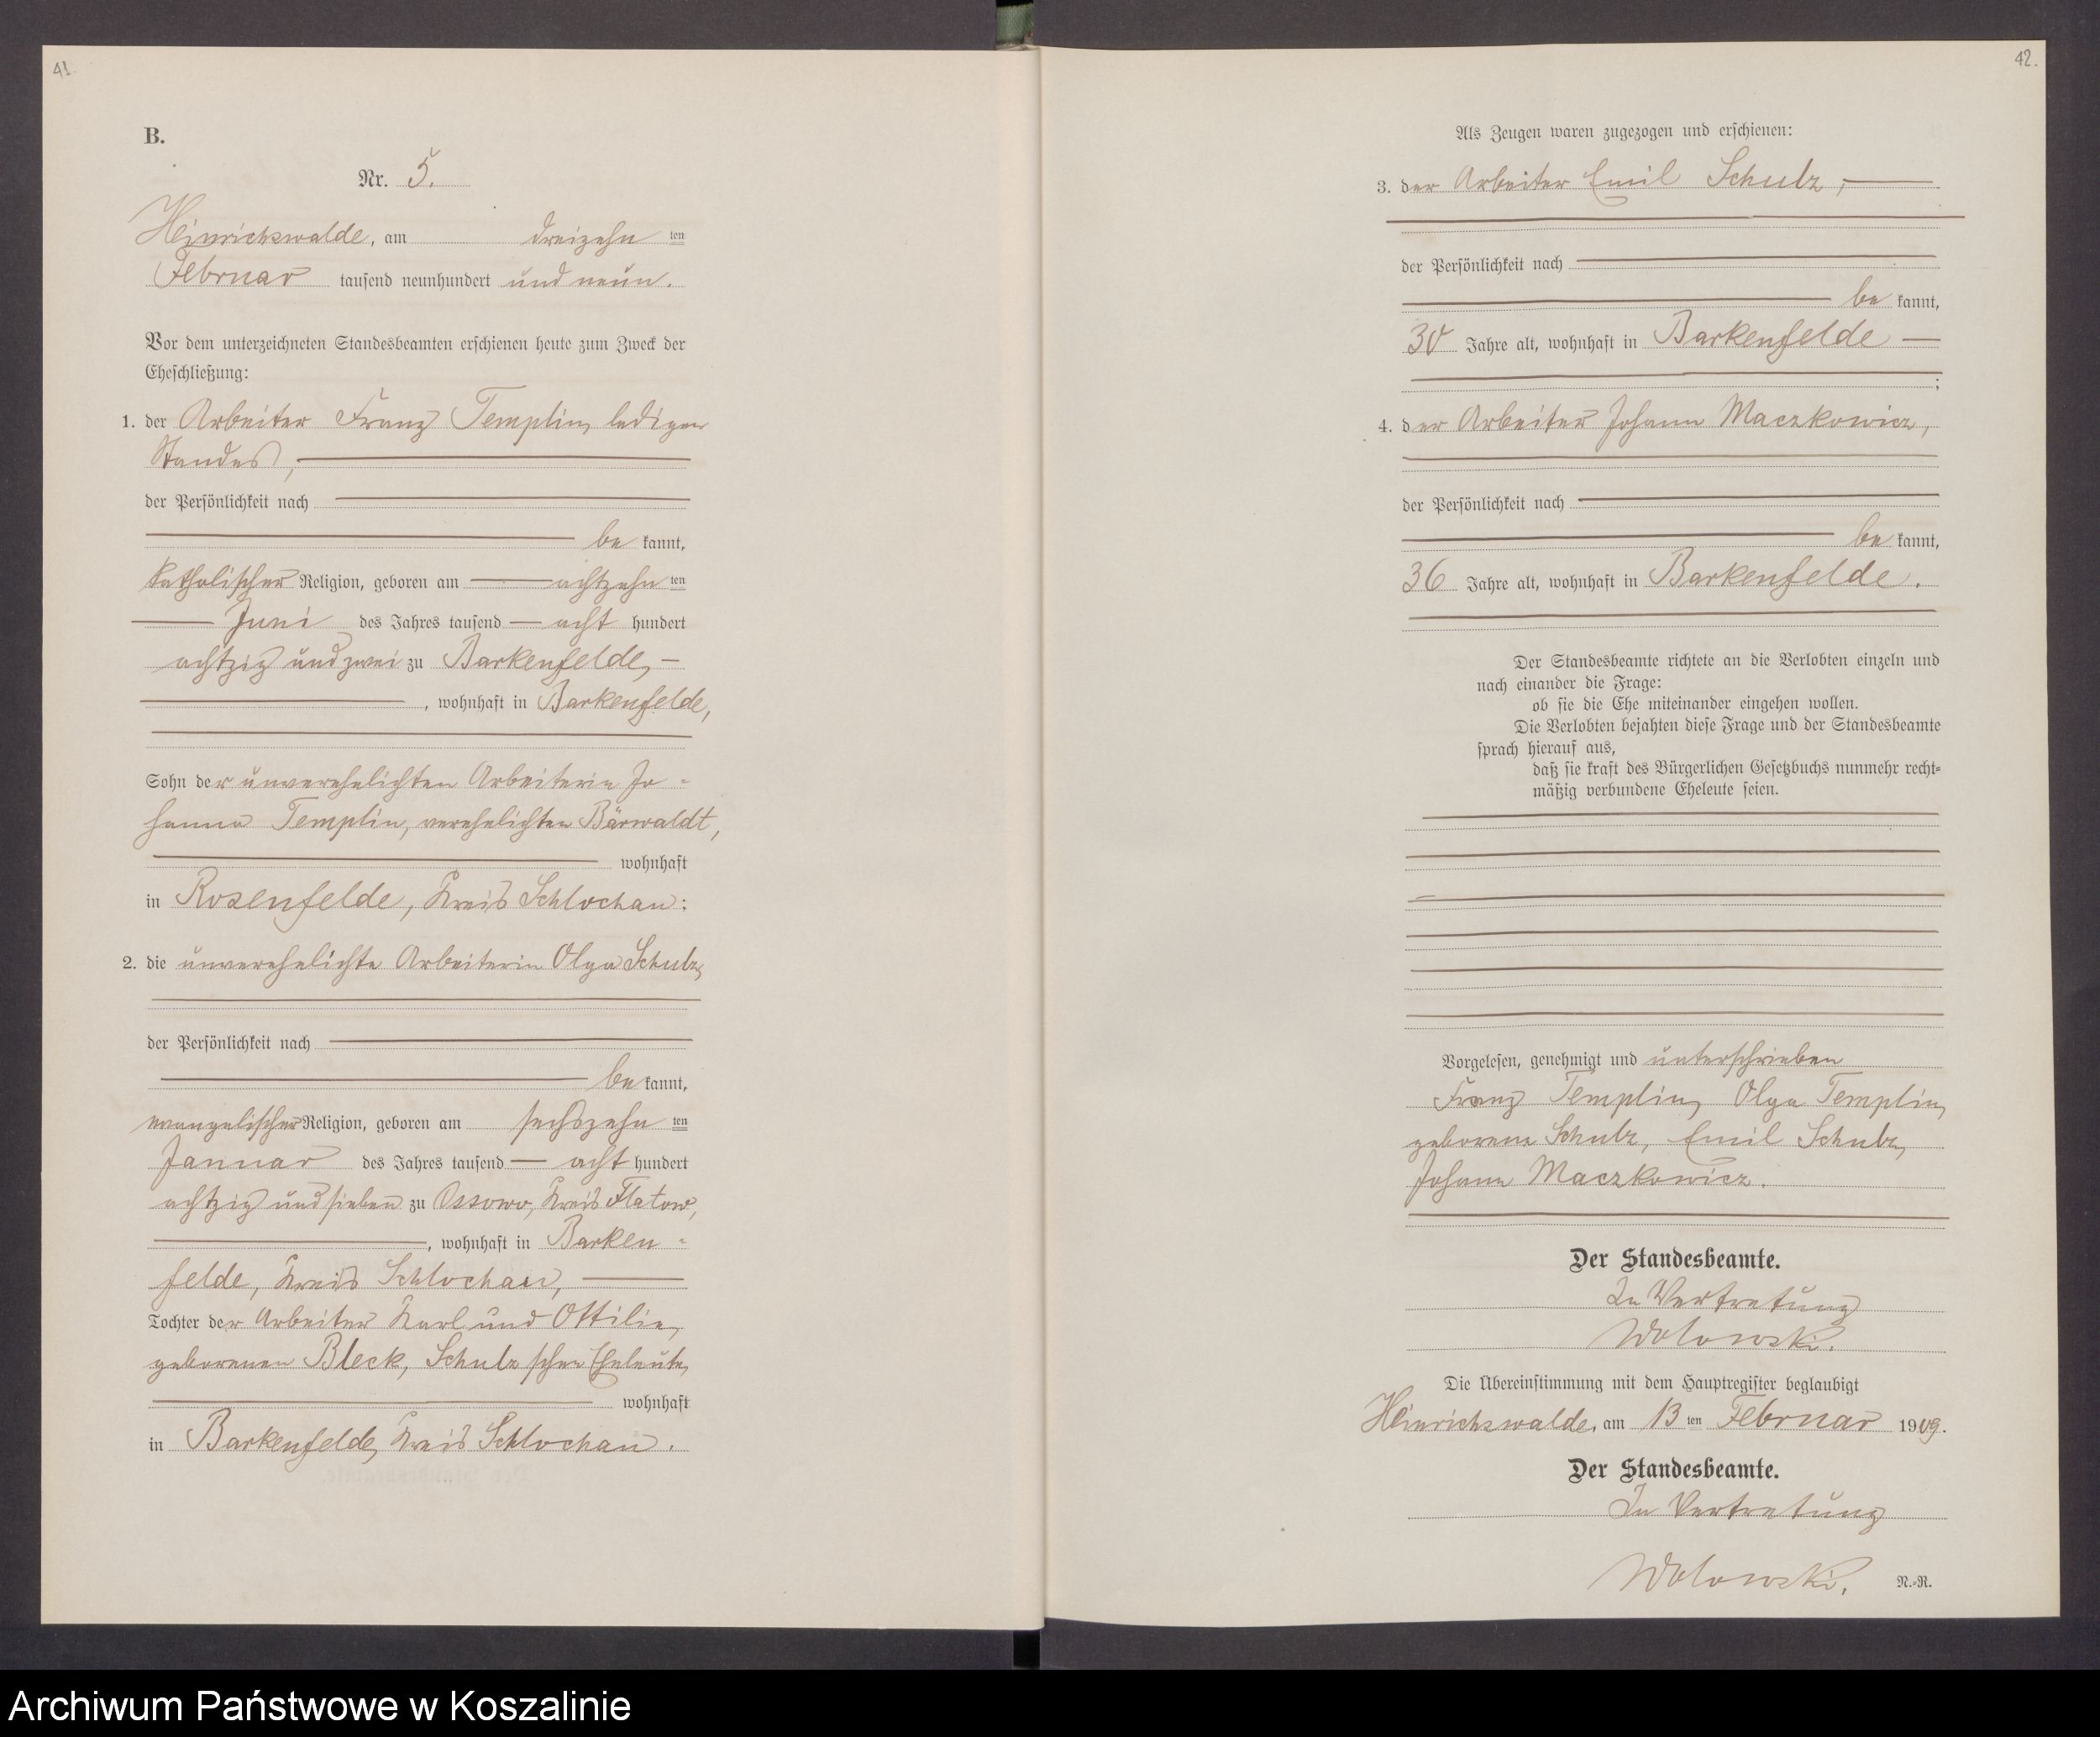 41.
B.
Nr. 5.
Heinrichswalde, am dreizehn ten
Februar tausend neunhundert und neun.
Vor dem unterzeichneten Standesbeamten erschienen heute zum Zweck der
Eheschließung:
1. der Arbeiter Franz Templin, ledigen
Standes,
der Persönlichkeit nach
be kannt,
katholischer Religion, geboren am achtzehn ten
Juni des Jahres tausend acht hundert
achtzig und zwei zu Barkenfelde,
, wohnhaft in Barkenfelde,
Sohn der unverehelichten Arbeiterin Jo-
hanna Templin, verehelichten Bärwaldt,
wohnhaft
in Rosenfelde, Kreis Schlochau:
2. die unverehelichte Arbeiterin Olga Schulz,
der Persönlichkeit nach
be kannt,
evangelischer Religion, geboren am sechszehn ten
Januar des Jahres tausend acht hundert
achtzig und sieben zu Ossowo, Kreis Flatow,
, wohnhaft in Barken-
felde, Kreis Schlochau,
Tochter der Arbeiter Karl und Ottilie,
geborenen Bleck, Schulz'schen Eheleute,
wohnhaft
in Barkenfelde, Kreis Schlochau.
42.
Als Zeugen waren zugezogen und erschienen:
3. der Arbeiter Emil Schulz,
der Persönlichkeit nach
be kannt,
30 Jahre alt, wohnhaft in Barkenfelde
;
4. der Arbeiter Johann Maczkowicz,
der Persönlichkeit nach
be kannt,
36 Jahre alt, wohnhaft in Barkenfelde.
Der Standesbeamte richtete an die Verlobten einzeln und
nach einander die Frage:
ob sie die Ehe miteinander eingehen wollen.
Die Verlobten bejahten diese Frage und der Standesbeamte
sprach hierauf aus,
daß sie kraft des Bürgerlichen Gesetzbuchs nunmehr recht-
mäßig verbundene Eheleute seien.
Vorgelesen, genehmigt und unterschrieben
Franz Templin, Olga Templin,
geborene Schulz, Emil Schulz,
Johann Maczkowicz.
Der Standesbeamte.
In Vertretung
Wolowski.
Die Übereinstimmung mit dem Hauptregister beglaubigt
Heinrichswalde, am 13 ten Februar 1909.
Der Standesbeamte.
In Vertretung
Wolowski.
N.-R.
Archiwum Państwowe w Koszalinie